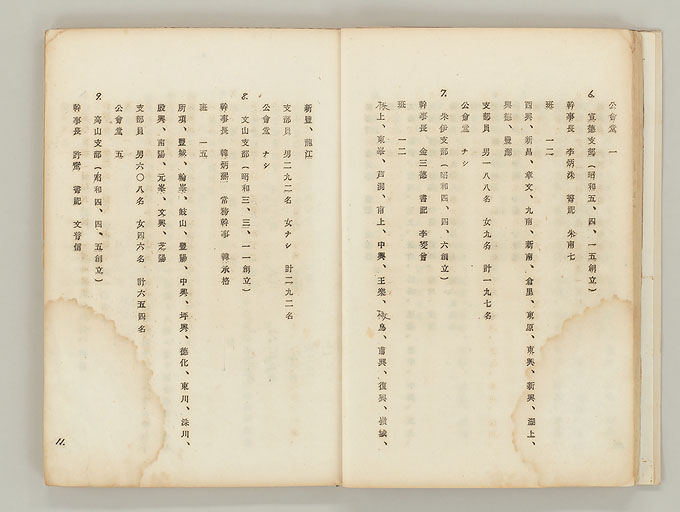 公會堂 一
6. 宣德支部(昭和五、四、一五創立)
幹事長 李炳洙 書記 朱南七
班 一二
四興、新昌、章文、九南、新南、倉里、東原、東興、新興、湖上、
興德、豐潮
支部員 男一八八名 女九名 計一九七名
公會堂 ナシ
7. 朱伊支部(昭和四、四、六創立)
幹事長 金三德 書記 李
班 一二
上、東峯、芦洞、南上、中興、王、島、南興、復興、
新豐、龍江
支部員 男二九二名 女ナシ 計二九二名
公會堂 ナシ
8. 文山支部(昭和三、三、一一創立)
幹事長 韓炳 常務幹事 韓承格
班 一五
所項、豐城、輪峯、岐山、豐陽、中興、坪興、德化、東川、洙川、
殷興、南陽、元峯、文興、芝陽
支部員 男六〇八名 女四六名 計六五四名
公會堂 五
9. 高山支部(昭和四、四、五創立)
幹事長 許 書記 文
11.